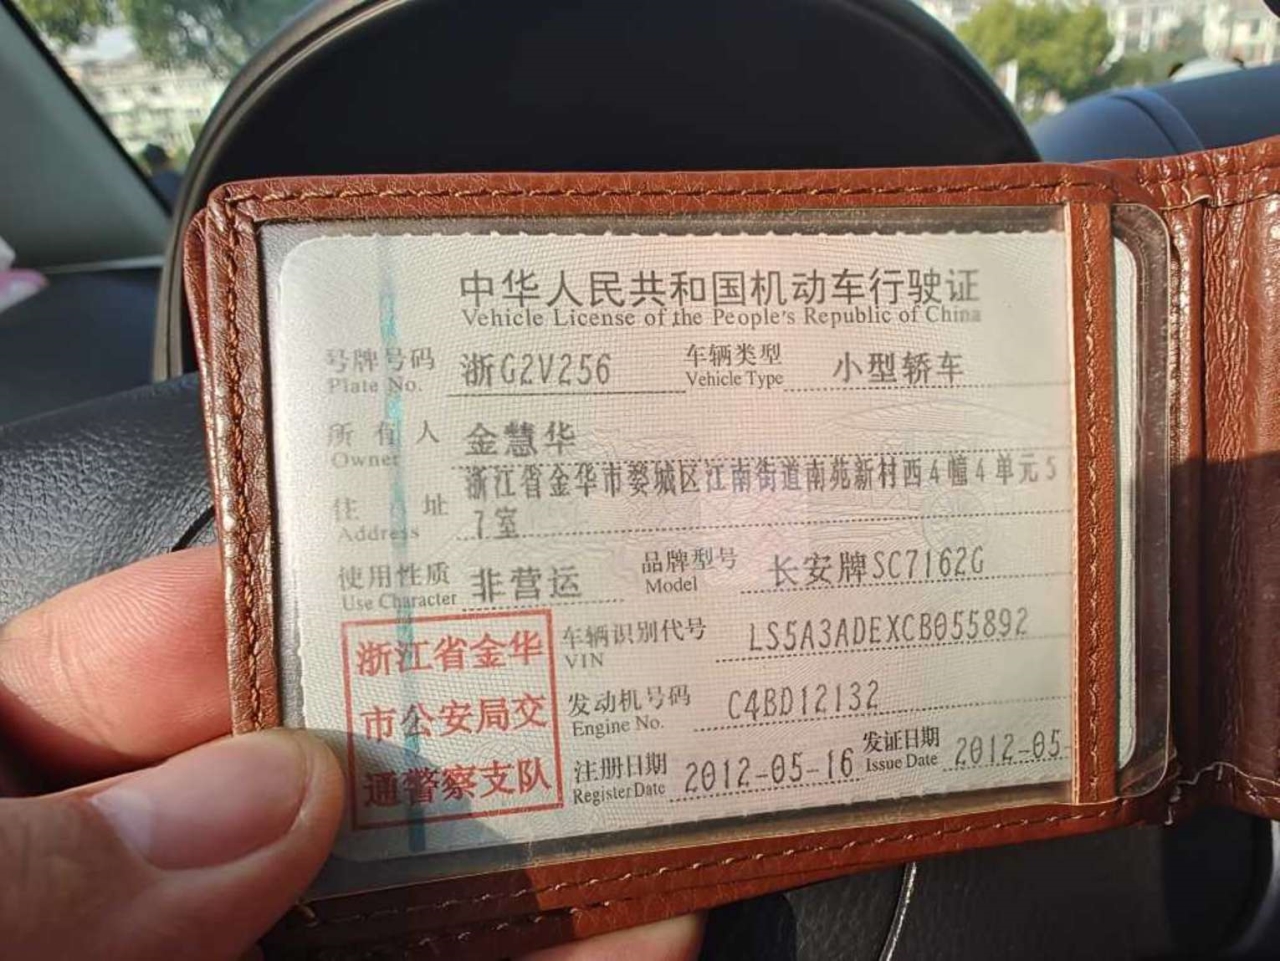 中华人民共和国机动车行驶证
Vehicle License of the People's Republic of China
号牌号码 浙G2V256 车辆类型 小型轿车
Plate No. Vehicle Type
所有人 金慧华
Owner
浙江省金华市婺城区江南街道南苑新村西4幢4单元5
住址 7室
Address
使用性质 非营运 品牌型号 长安牌SC7162G
Use Character Model
浙江省金华
市公安局交
通警察支队
车辆识别代号 LS5A3ADEXCB055892
VIN
发动机号码 C4BD12132
Engine No.
注册日期 2012-05-16 发证日期 2012-05-
Register Date Issue Date